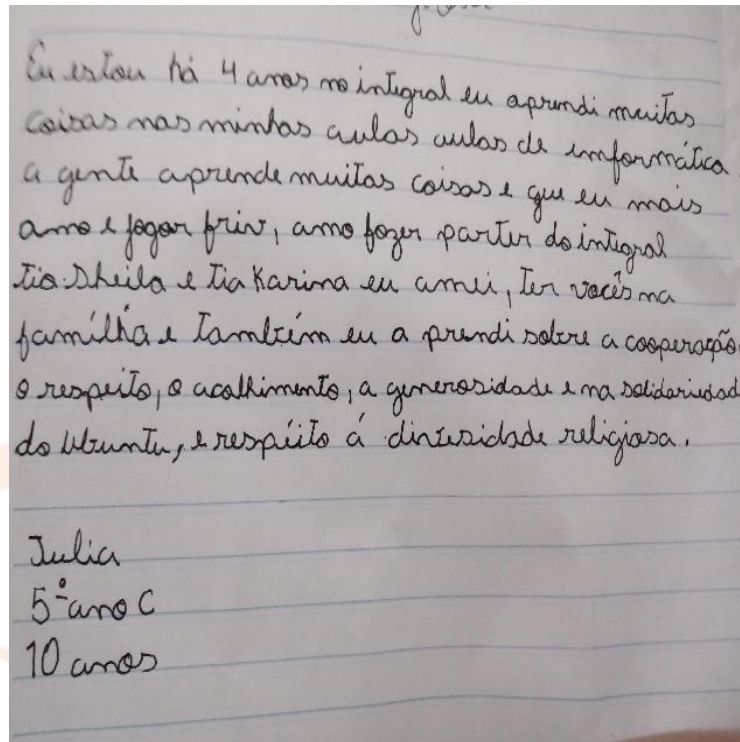 Eu estou há 4 anos no integral eu aprendi muitas
coisas nas minhas aulas aulas de imformática
a gente aprende muitas coisas e que eu mais
amo e jogar friv, amo fazer parter do integral
tia Sheila e tia Karina eu amei, ter vocês na
famílha e também eu a prendi sobre a cooperação
o respeito, o acolhimento, a generosidade e na solidariedad
do Ubuntu, e respeíto á diversidade religiosa.
Julia
5º ano C
10 anos